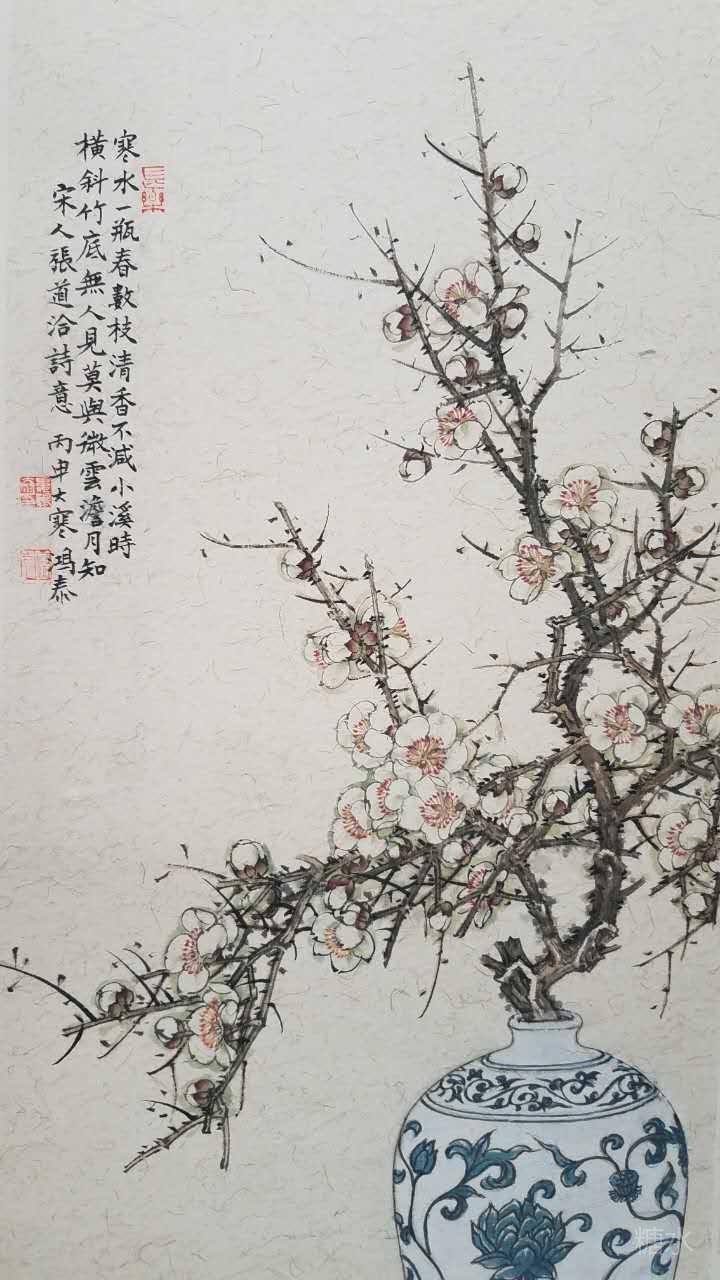 長樂
寒水一瓶春數枝清香不减小溪時
橫斜竹底無人見莫與微雲澹月知
宋人張道洽詩意 丙申大寒鴻泰
糖水